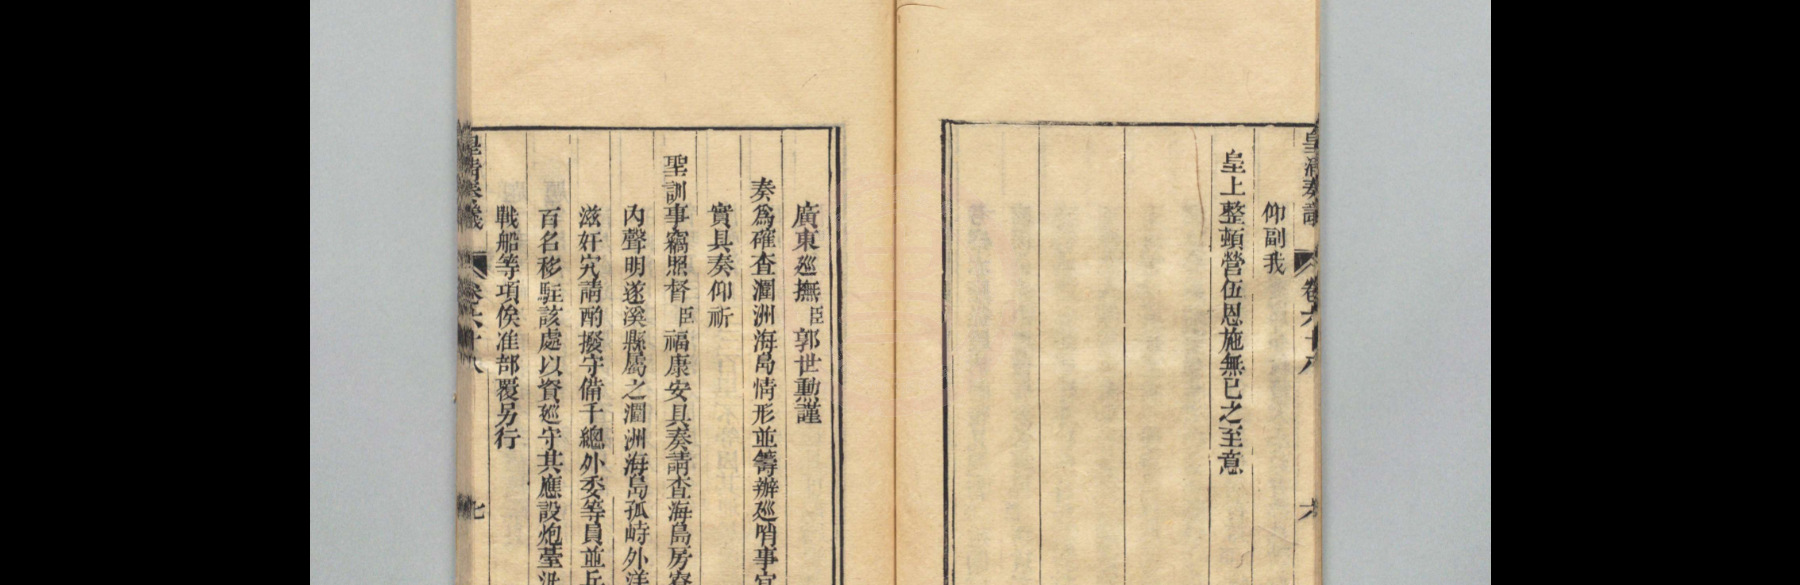 皇清奏議 卷六十八 六
仰副我
皇上整頓營伍恩施無已之至意
廣東廵撫臣郭世勳謹
奏爲確查潿洲海島情形並籌辦廵哨事宜
實具奏仰祈
聖訓事竊照督臣福康安具奏請查海島房寮
內聲明遂溪縣屬之潿洲海島孤峙外洋
滋奸宄請酌撥守備千總外委等員並兵
百名移駐該處以資廵守其應設炮臺汛
戰船等項俟准部覆另行
皇清奏議 卷六十八 七